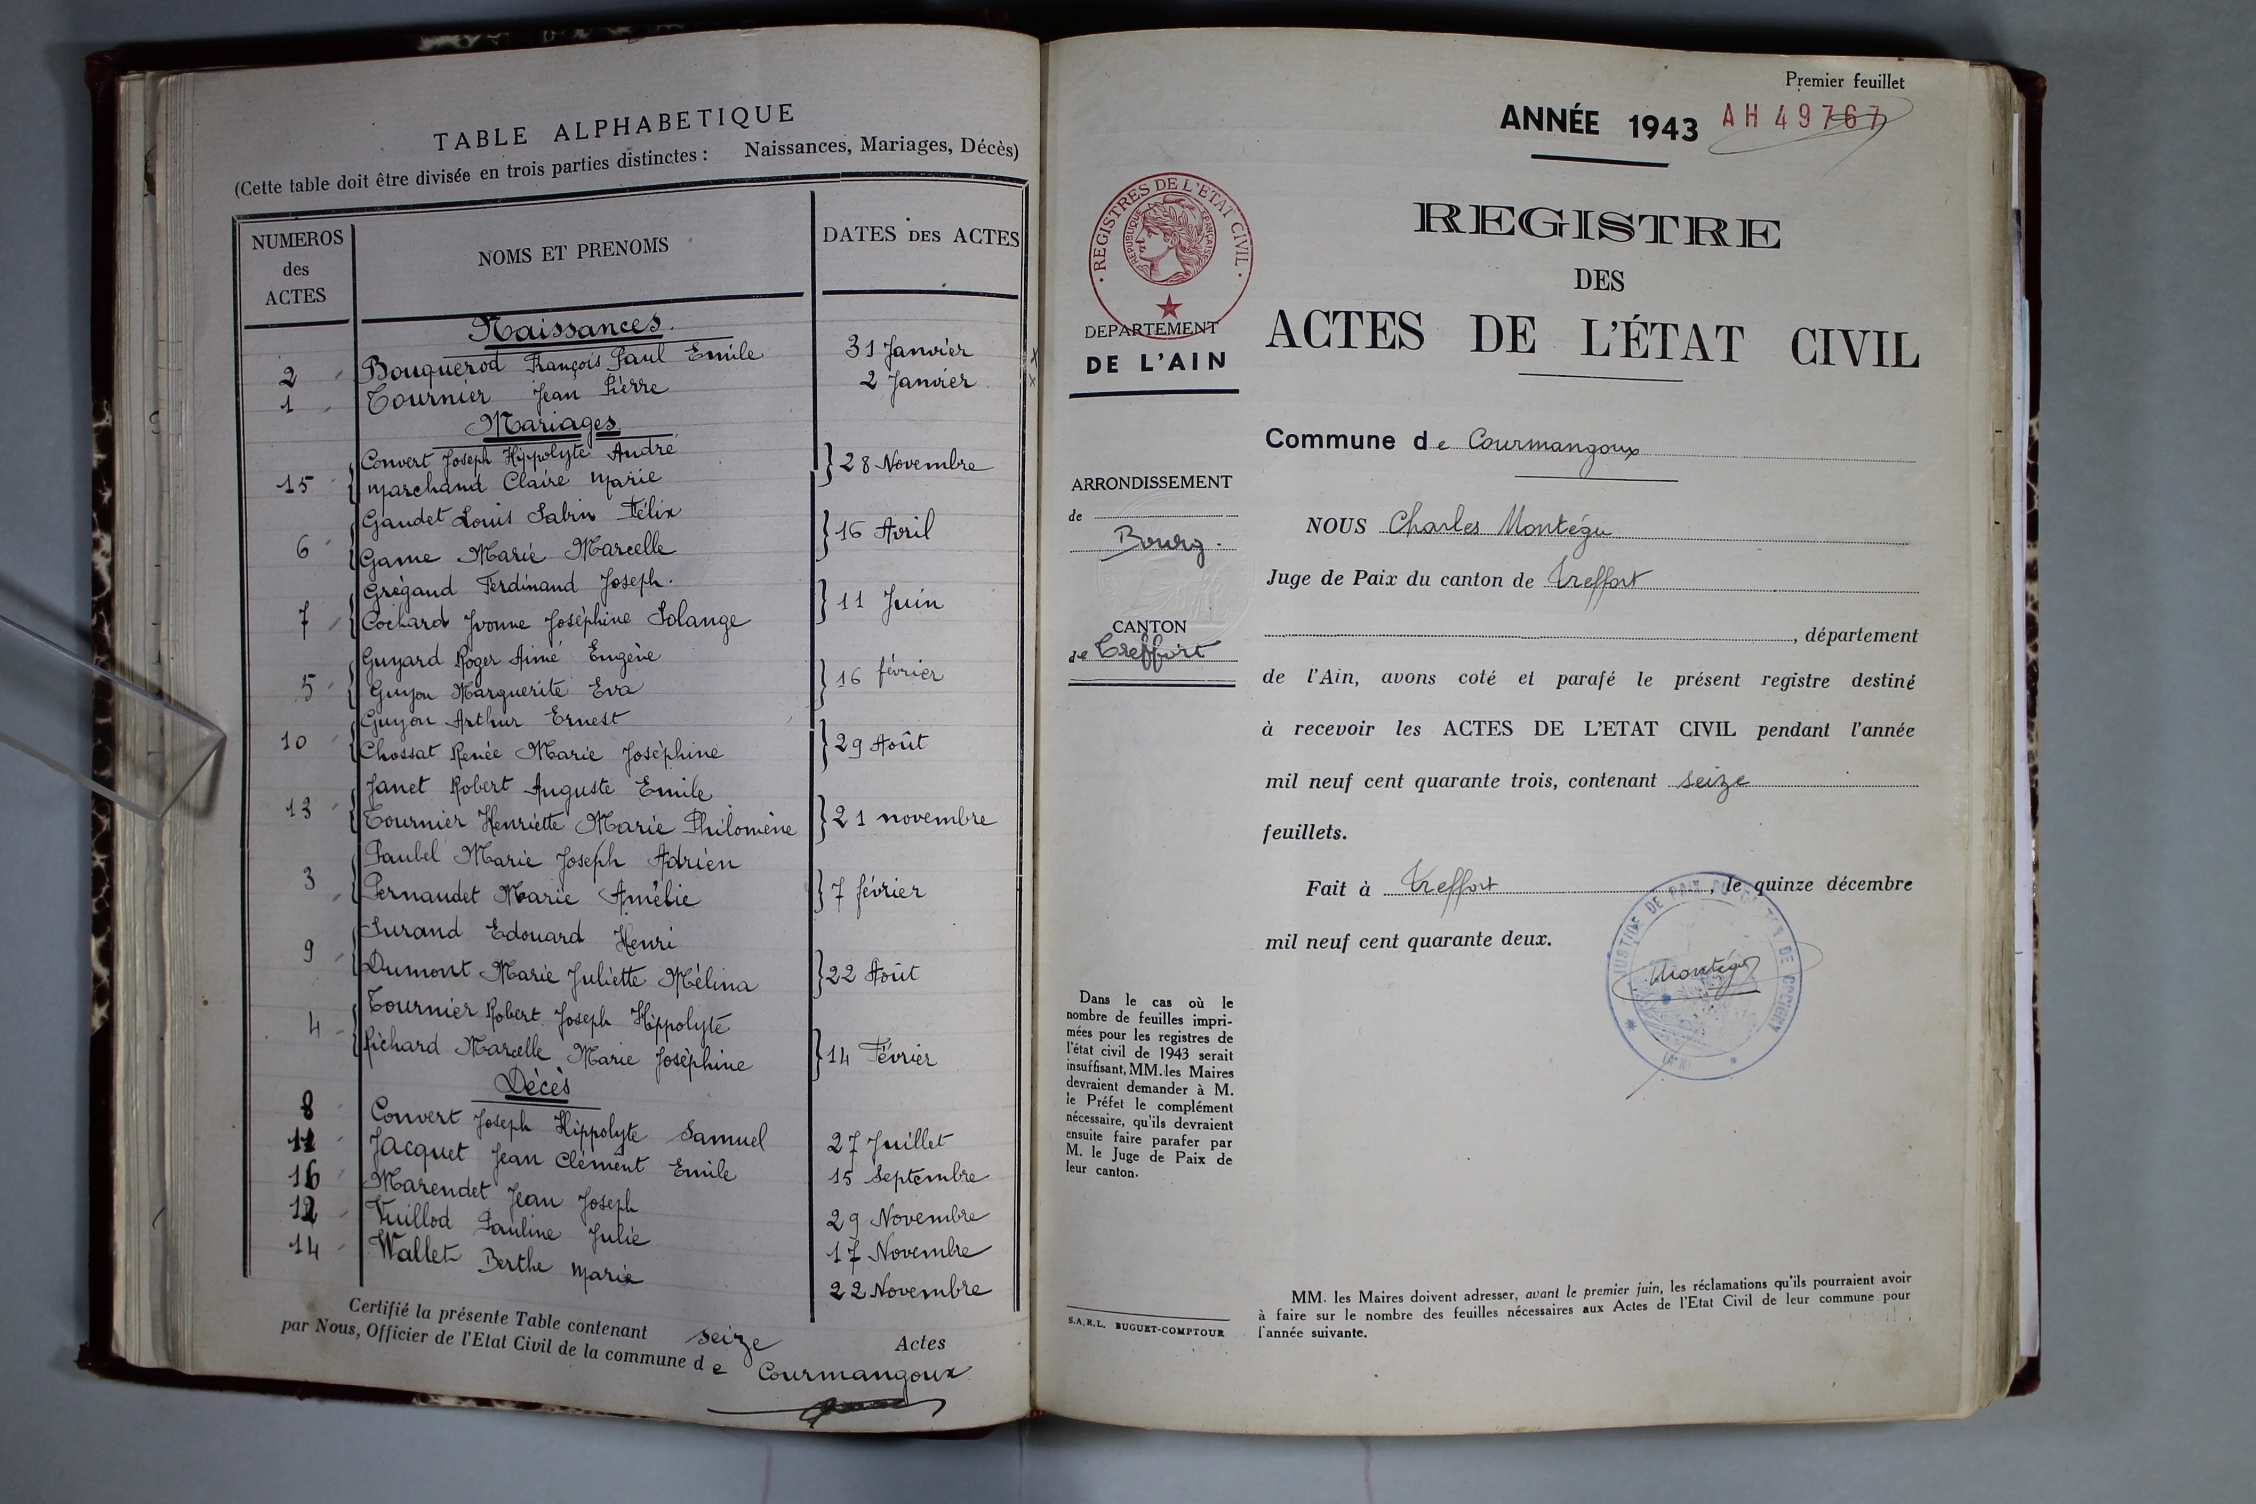 TABLE ALPHABETIQUE
(Cette table doit être divisée en trois parties distinctes : Naissances, Mariages, Décès)
NUMEROS des ACTES NOMS ET PRENOMS DATES DES ACTES
Naissances.
2 Bouquerod François Paul Emile 31 Janvier
1 Tournier Jean Pierre 2 Janvier
Mariages
Convert Joseph Hippolyte André
15 Marchand Claire Marie 28 Novembre
Gaudet Louis Sabin Félix
6 Game Marie Marcelle 16 Avril
Grégand Ferdinand Joseph.
7 Cochard Yvonne Joséphine Solange 11 Juin
Guyard Roger Aimé Eugène
5 Guyon Marguerite Eva 16 février
Guyon Arthur Ernest
10 Chossat Renée Marie Joséphine 29 Août
Janet Robert Auguste Emile
13 Tournier Henriette Marie Philomène 21 novembre
Paubel Marie Joseph Adrien
3 Pernaudet Marie Amélie 7 février
Surand Edouard Henri
9 Dumont Marie Juliette Mélina 22 Août
Tournier Robert Joseph Hippolyte
4 Richard Marcelle Marie Joséphine 14 Février
Décès
8 Convert Joseph Hippolyte Samuel 27 Juillet
11 Jacquet Jean Clément Emile 15 Septembre
16 Marendet Jean Joseph 29 Novembre
12 Vuillod Pauline Julie 17 Novembre
14 Wallet Berthe Marie 22 Novembre
Certifié la présente Table contenant seize Actes
par Nous, Officier de l'Etat Civil de la commune de Courmangoux
Premier feuillet
ANNÉE 1943 AH 49767
REGISTRES DE L'ETAT CIVIL
REPUBLIQUE FRANÇAISE
DEPARTEMENT
DE L'AIN
ARRONDISSEMENT
de
Bourg.
CANTON
de Treffort
Dans le cas où le
nombre de feuilles impri-
mées pour les registres de
l'état civil de 1943 serait
insuffisant, MM. les Maires
devraient demander à M.
le Préfet le complément
nécessaire, qu'ils devraient
ensuite faire parafer par
M. le Juge de Paix de
leur canton.
S.A.R.L. BUGUET-COMPTOUR
REGISTRE
DES
ACTES DE L'ÉTAT CIVIL
Commune de Courmangoux
NOUS Charles Montégu
Juge de Paix du canton de Treffort
, département
de l'Ain, avons coté et parafé le présent registre destiné
à recevoir les ACTES DE L'ETAT CIVIL pendant l'année
mil neuf cent quarante trois, contenant seize
feuillets.
Fait à Treffort, le quinze décembre
mil neuf cent quarante deux.
JUSTICE DE PAIX DU CANTON DE
Montégu
MM. les Maires doivent adresser, avant le premier juin, les réclamations qu'ils pourraient avoir
à faire sur le nombre des feuilles nécessaires aux Actes de l'Etat Civil de leur commune pour
l'année suivante.